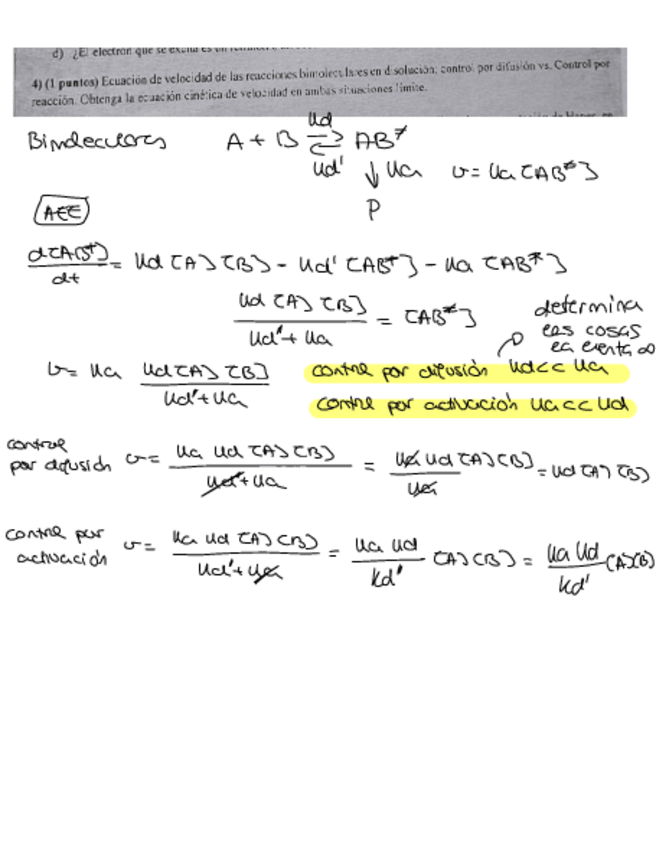 d) ¿El electrón que se
4) (1 puntos) Ecuación de velocidad de las reacciones bimoleculares en disolución; control por difusión vs. Control por
reacción. Obtenga la ecuación cinética de velocidad en ambas situaciones límite.
Bimoleculares A + B ⇌ AB≠
kd
kd' ↓ ka v = ka [AB≠]
P
AEE
d[AB≠]/dt = kd [A] [B] - kd' [AB≠] - ka [AB≠]
kd [A] [B] / kd' + ka = [AB≠]
determina
las cosas
v = ka kd [A] [B] / kd' + ka
control por difusión kd << ka
control por activación ka << kd
control
por difusión v = ka kd [A] [B] / kd' + ka = ka kd [A] [B] / ka = kd [A] [B]
control por
activación v = ka kd [A] [B] / kd' + ka = ka kd / kd' [A] [B] = ka kd / kd' [A][B]